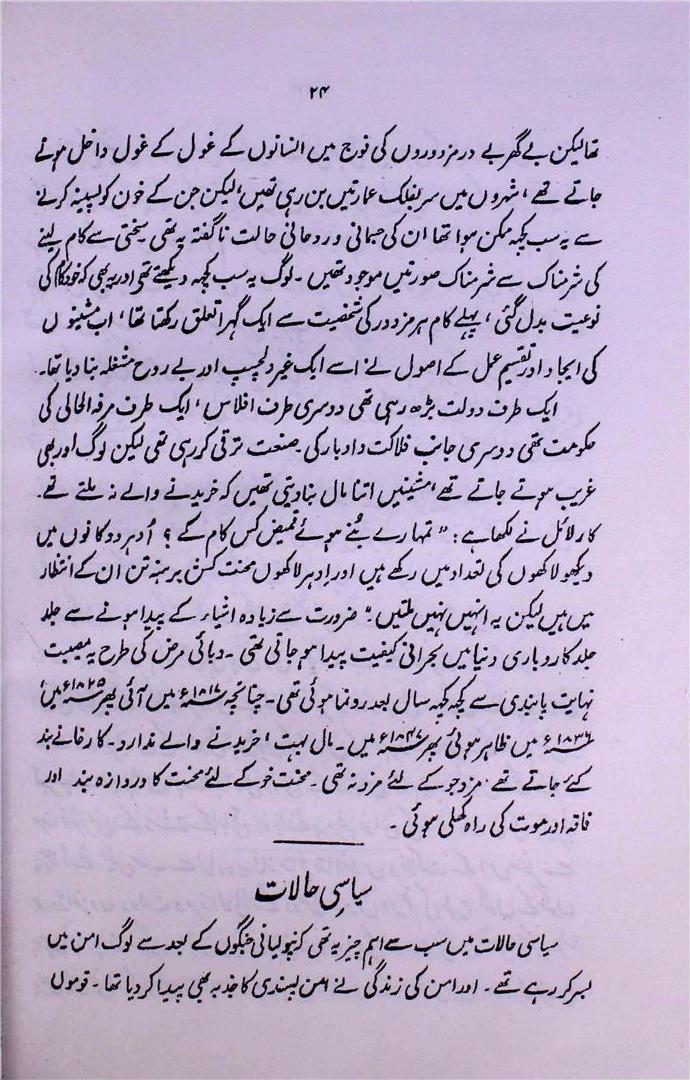 ۲۴
تھا لیکن بے گھر بے در مزدوروں کی فوج میں انسانوں کے غول کے غول داخل ہوتے
جاتے تھے، شہروں میں سر بفلک عمارتیں بن رہی تھیں، لیکن جن کے خون کو پسینہ کرنے
سے یہ سب کچھ ممکن ہوا تھا ان کی جسمانی و روحانی حالت ناگفتہ بہ تھی۔ سختی سے کام لینے
کی شرمناک سے شرمناک صورتیں موجود تھیں۔ لوگ یہ سب کچھ دیکھتے تھے اور یہ بھی کہ خود کام کی
نوعیت بدل گئی، پہلے کام ہر مزدور کی شخصیت سے ایک گہرا تعلق رکھتا تھا، اب مشینوں
کی ایجاد اور تقسیم عمل کے اصول نے اسے ایک غیر دلچسپ اور بے روح مشغلہ بنا دیا تھا۔
ایک طرف دولت بڑھ رہی تھی دوسری طرف افلاس، ایک طرف مرفہ الحالی کی
حکومت تھی دوسری جانب فلاکت و ادبار کی۔ صنعت ترقی کر رہی تھی لیکن لوگ اور بھی
غریب ہوتے جاتے تھے، مشینیں اتنا مال بنا دیتی تھیں کہ خریدنے والے نہ ملتے تھے۔
کارلائل نے لکھا ہے: "تمہارے بُنے ہوئے قمیض کس کام کے؟ اُدہر دوکانوں میں
دیکھو لاکھوں کی تعداد میں رکھے ہیں اور اِدہر لاکھوں محنت کش برہنہ تن ان کے انتظار
میں ہیں لیکن یہ انہیں نہیں ملتیں۔" ضرورت سے زیادہ اشیاء کے پیدا ہونے سے جلد
جلد کاروباری دنیا میں بحرانی کیفیت پیدا ہو جاتی تھی۔ وبائی مرض کی طرح یہ مصیبت
نہایت پابندی سے کچھ کچھ سال بعد رونما ہوئی تھی۔ چنانچہ ۱۸۱۷ء میں آئی پھر ۱۸۲۵ء میں،
۱۸۳۶ء میں ظاہر ہوئی پھر ۱۸۴۷ء میں۔ مال بہت، خریدنے والے ندارد۔ کارخانے بند
کئے جاتے تھے مزد جو کے لئے مزد نہ تھی۔ محنت خو کے لئے محنت کا دروازہ بند اور
فاقہ اور موت کی راہ کھلی ہوئی۔
سیاسی حالات
سیاسی حالات میں سب سے اہم چیز یہ تھی کہ نپولیانی جنگوں کے بعد سے لوگ امن میں
بسر کر رہے تھے۔ اور امن کی زندگی نے امن پسندی کا جذبہ بھی پیدا کر دیا تھا۔ قوموں